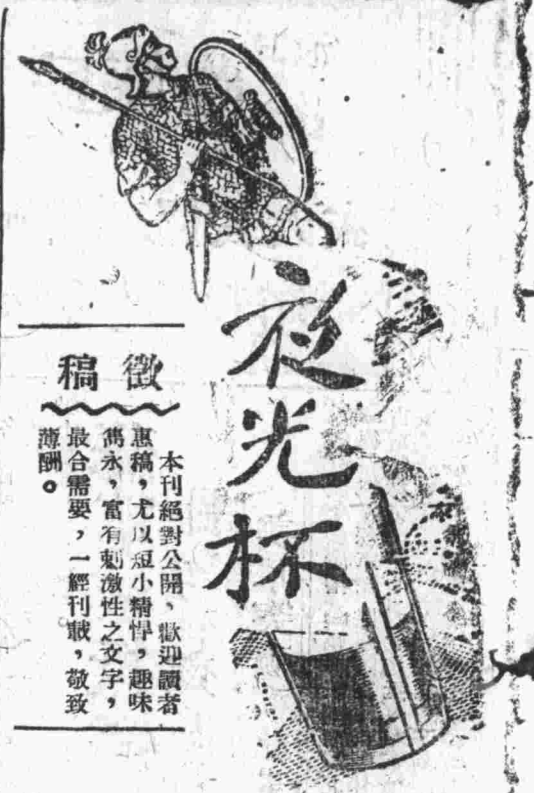 夜光杯
徵稿
本刊絕對公開，歡迎讀者
惠稿，尤以短小精悍，趣味
雋永，富有刺激性之文字，
最合需要，一經刊載，敬致
薄酬。